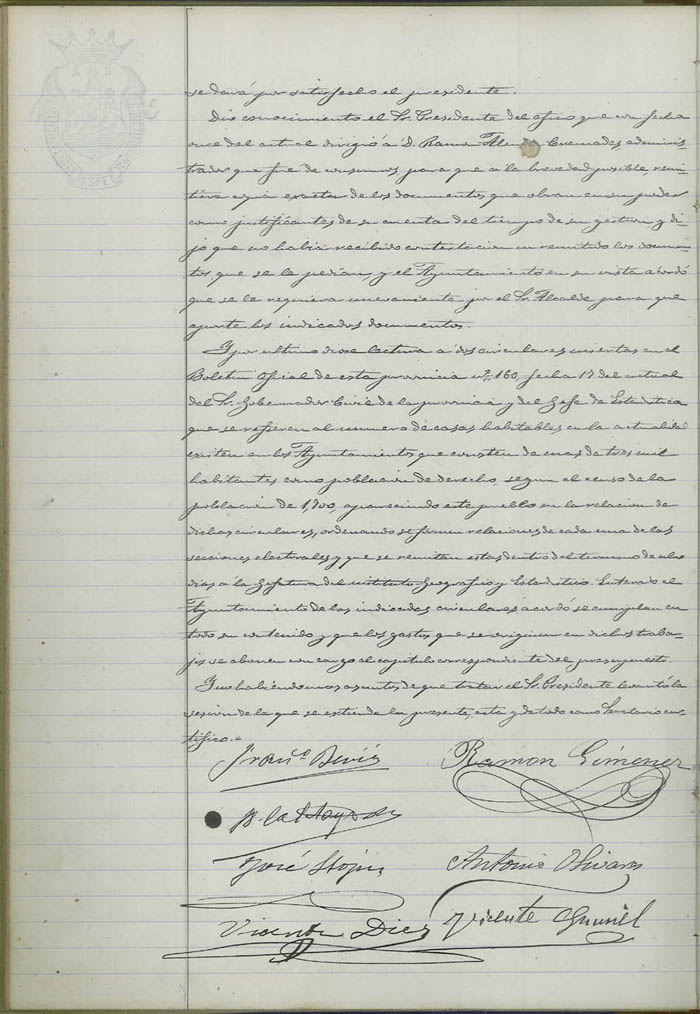 se dará por satisfecho el presidente.
Dio conocimiento el Sr. Presidente del oficio que con fecha
once del actual dirigió a D. Ramon Cremades, adminis-
trador que fue de consumos, para que a la brevedad posible remi-
tiera copia exacta de los documentos que obran en su poder
como justificantes de su cuenta del tiempo de su gestion, y di-
jo que no habia recibido contestacion ni remitido los documen-
tos que se le pedian, y el Ayuntamiento en su vista acordó
que se le requiera nuevamente por el Sr. Alcalde para que
aporte los indicados documentos.
Y por ultimo diose lectura a dos circulares insertas en el
Boletin Oficial de esta provincia nº 160, fecha 17 del actual
del Sr. Gobernador Civil de la provincia y del Gefe de Estadistica
que se refieren al numero de casas habitables en la actualidad
existen en los Ayuntamientos que consten de mas de tres mil
habitantes como poblacion de derecho, segun el censo de la
poblacion de 1,900, apareciendo este pueblo en la relacion de
dichas circulares, ordenando se formen relaciones de cada una de las
secciones electorales y que se remitan estas dentro del termino de
dias a la Gefatura del instituto Geografico y Estadistico. Enterado el
Ayuntamiento de las indicadas circulares acordó se cumplan en
todo su contenido y que los gastos que se originen en dichos traba-
jos se abonen con cargo al capitulo correspondiente del presupuesto.
Y no habiendo mas asuntos de que tratar el Sr. Presidente levantó la
sesion de la que se estiende la presente acta y de todo como Secretario cer-
tifico.=
Franº Devis Ramon Gimenez
José Llopis Antonio Olivares
Vicente Diez Vicente